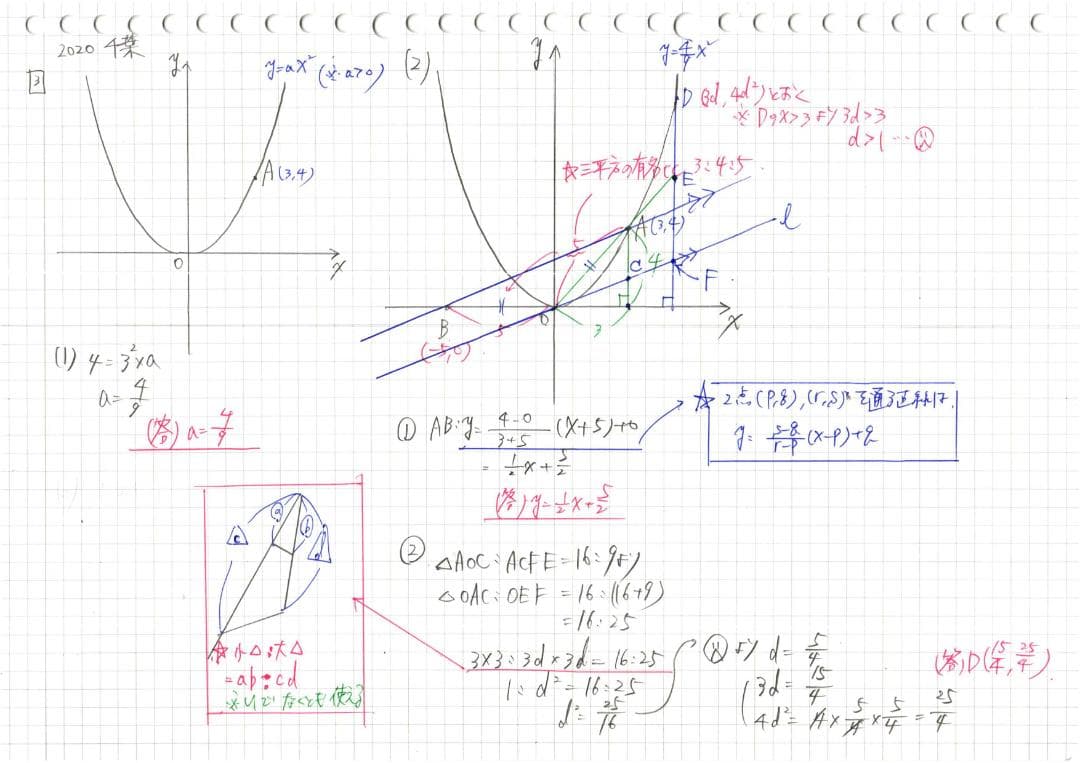 2020 千葉
3
y
y=ax² (※a>0)
A(3,4)
O
x
(1) 4=3²×a
a=4/9
(答) a=4/9
(2)
y
y=4/9x²
D(3d, 4d²)とおく
※Dのx>3より3d>3
d>1…㊨
☆三平方の有名比 3:4:5
E
A(3,4)
l
5
C
4
F
O
x
3
B
5
(-5,0)
① AB:y=4-0/3+5(x+5)+0
=1/2x+5/2
(答) y=1/2x+5/2
☆2点(p,q),(r,s)を通る直線は、
y=s-q/r-p(x-p)+q
② △AOC:ACFE=16:9より
△OAC:OEF=16:(16+9)
=16:25
3×3:3d×3d=16:25
1:d²=16:25
d²=25/16
より d=5/4
3d=15/4
4d²=4×5/4×5/4=25/4
(答)D(15/4,25/4)
a
b
c
d
☆小△:大△
=ab:cd
使える